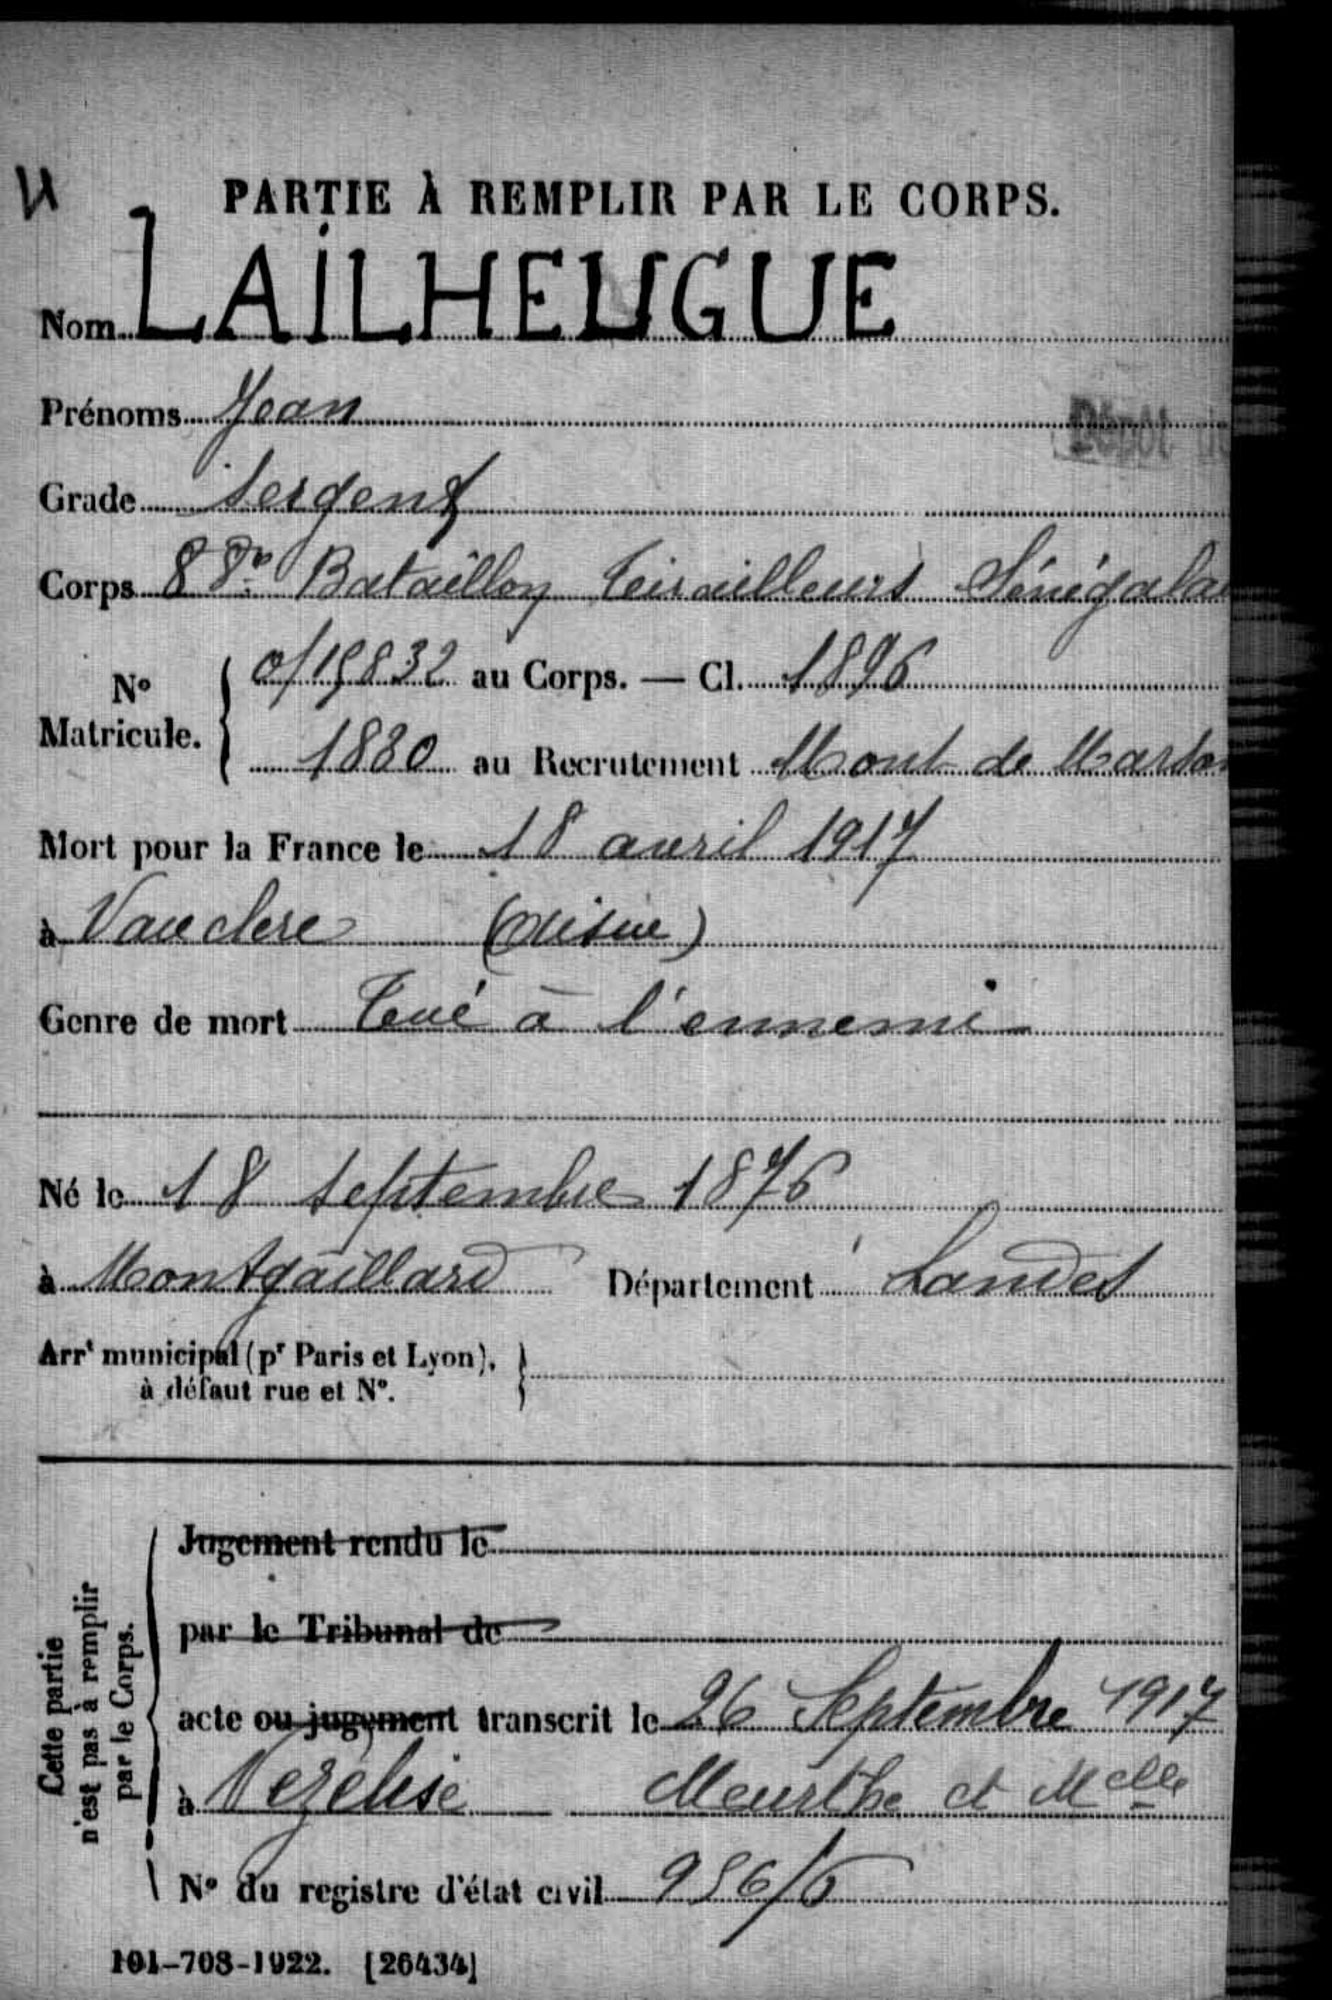 PARTIE À REMPLIR PAR LE CORPS.
Nom LAILHEUGUE
Prénoms Jean
Dépôt de
Grade Sergent
Corps 88e Bataillon Tirailleurs Sénégalai
N° Matricule. { 0/15832 au Corps. — Cl. 1896
1880 au Recrutement Mont de Marsa
Mort pour la France le 18 avril 1917
à Vauclere (Aisne)
Genre de mort Tué à l'ennemi
Né le 18 septembre 1876
à Montgaillard Département Landes
Arrt municipal (pr Paris et Lyon), à défaut rue et N°.
Cette partie n'est pas à remplir par le Corps.
Jugement rendu le
par le Tribunal de
acte ou jugement transcrit le 26 Septembre 1917
à Vezelise Meurthe et Melle
N° du registre d'état civil 956/6
101-708-1922. [26434]